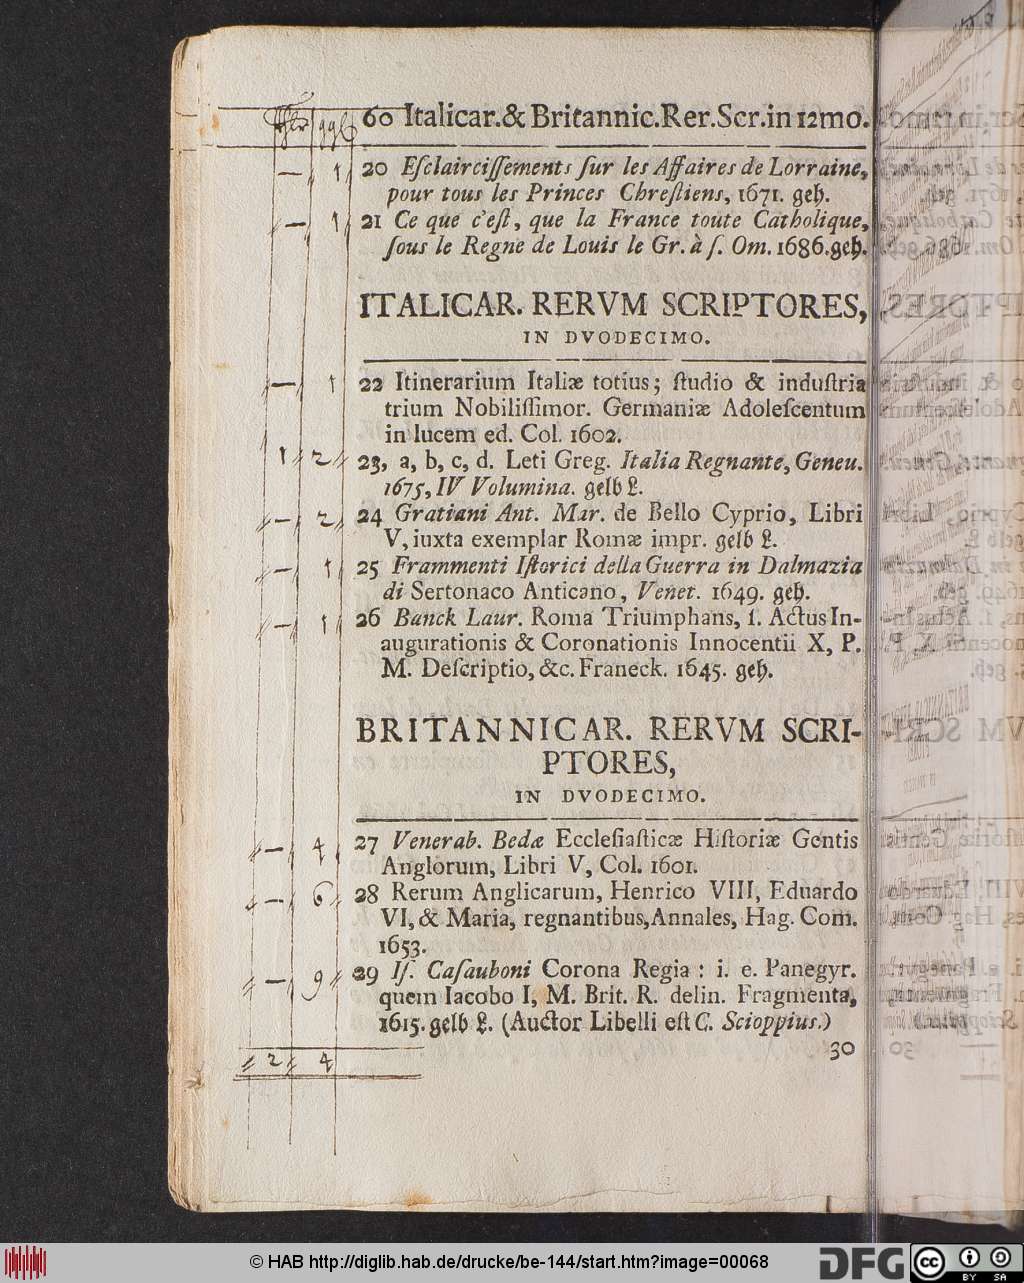 60 Italicar.& Britannic.Rer.Scr.in 12mo.
– 1 20 Eſclairciſſements ſur les Affaires de Lorraine,
pour tous les Princes Chreſtiens, 1671. geh.
– 1 21 Ce que c'eſt, que la France toute Catholique,
ſous le Regne de Louis le Gr. à ſ. Om. 1686.geh.
ITALICAR. RERVM SCRIPTORES,
IN DVODECIMO.
– 1 22 Itinerarium Italiæ totius; ſtudio & induſtria
trium Nobiliſſimor. Germaniæ Adoleſcentum
in lucem ed. Col. 1602.
1 2 23, a, b, c, d. Leti Greg. Italia Regnante, Geneu.
1675, IV Volumina. gelb L.
– 2 24 Gratiani Ant. Mar. de Bello Cyprio, Libri
V, iuxta exemplar Romæ impr. gelb L.
– 1 25 Frammenti Iſtorici della Guerra in Dalmazia
di Sertonaco Anticano, Venet. 1649. geh.
– 1 26 Banck Laur. Roma Triumphans, ſ. Actus In-
augurationis & Coronationis Innocentii X, P.
M. Deſcriptio, &c. Franeck. 1645. geh.
BRITANNICAR. RERVM SCRI-
PTORES,
IN DVODECIMO.
– 4 27 Venerab. Bedæ Eccleſiaſticæ Hiſtoriæ Gentis
Anglorum, Libri V, Col. 1601.
– 6 28 Rerum Anglicarum, Henrico VIII, Eduardo
VI, & Maria, regnantibus, Annales, Hag. Com.
1653.
– 9 29 Iſ. Caſauboni Corona Regia : i. e. Panegyr.
quem Iacobo I, M. Brit. R. delin. Fragmenta,
1615. gelb L. (Auctor Libelli eſt C. Scioppius.)
30
2 4
© HAB http://diglib.hab.de/drucke/be-144/start.htm?image=00068
DFG
cc BY SA